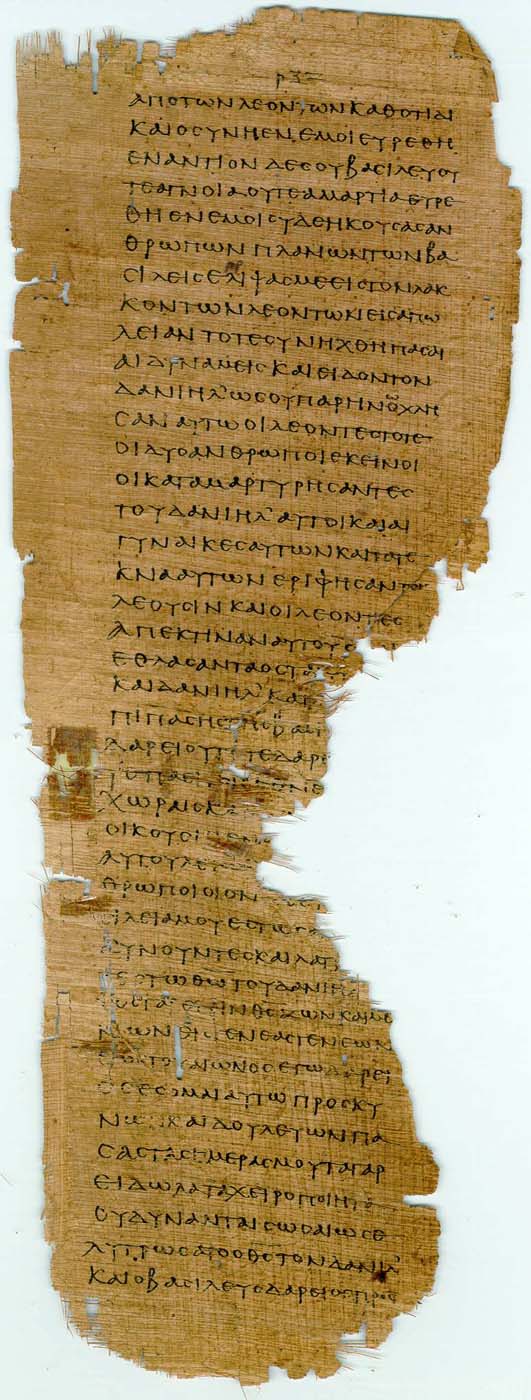 ΑΠΟΤΩΝΛΕΟΝΤΩΝΚΑΘΟΤΙΔΙ
ΚΑΙΟΣΥΝΗΕΝΕΜΟΙΕΥΡΕΘΗ
ΕΝΑΝΤΙΟΝΔΕΣΟΥΒΑΣΙΛΕΥΟΥ
ΤΕΑΓΝΟΙΑΟΥΤΕΑΜΑΡΤΙΑΕΥΡΕ
ΘΗΕΝΕΜΟΙΣΥΔΕΗΚΟΥΣΑΣΑΝ
ΘΡΩΠΩΝΠΛΑΝΩΝΤΩΝΒΑ
ΣΙΛΕΙΣΕΡΙΨΑΣΜΕΕΙΣΤΟΝΛΑΚ
ΚΟΝΤΩΝΛΕΟΝΤΩΝΕΙΣΑΠΩ
ΛΕΙΑΝΤΟΤΕΣΥΝΗΧΘΗΠΑΣΑΙ
ΑΙΔΥΝΑΜΕΙΣΚΑΙΕΙΔΟΝΤΟΝ
ΔΑΝΙΗΛΩΣΟΥΠΑΡΗΝΟΧΛΗ
ΣΑΝΑΥΤΩΟΙΛΕΟΝΤΕΣΤΟΤΕ
ΟΙΔΥΟΑΝΘΡΩΠΟΙΕΚΕΙΝΟΙ
ΟΙΚΑΤΑΜΑΡΤΥΡΗΣΑΝΤΕΣ
ΤΟΥΔΑΝΙΗΛΑΥΤΟΙΚΑΙΑΙ
ΓΥΝΑΙΚΕΣΑΥΤΩΝΚΑΙΤΑΤΕ
ΚΝΑΑΥΤΩΝΕΡΙΦΗΣΑΝΤΟΙΣ
ΛΕΟΥΣΙΝΚΑΙΟΙΛΕΟΝΤΕΣ
ΑΠΕΚΤΙΝΑΝΑΥΤΟΥΣ
ΕΘΛΑΣΑΝΤΑΟΣΤΑ
ΚΑΙΔΑΝΙΗΛΚΑΤ
ΠΙΠΑΣΗΣΤΗΣΒΑΣΙ
ΔΑΡΕΙΟΥΤΟΤΕΔΑΡΕ
ΧΩΡΑΙΣΚ
ΟΙΚΟΥΣΙΝΕΝ
ΑΥΤΟΥΛΕΓ
ΘΡΩΠΟΙΟΙΟΝ
ΣΙΛΕΙΑΜΟΥΕΣΤΩ
ΚΥΝΟΥΝΤΕΣΚΑΙΛΑΤΡ
ΤΕΣΤΩΘΩΤΟΥΔΑΝΙΗΛ
ΖΩΝΕΙΣΓΕΝΕΑΣΓΕΝΕΩΝ
ΕΩΣΤΟΥΑΙΩΝΟΣΕΓΩΔΑΡΕΙ
ΟΣΕΣΟΜΑΙΑΥΤΩΠΡΟΣΚΥ
ΝΩΝΚΑΙΔΟΥΛΕΥΩΝΠΑ
ΣΑΣΤΑΣΗΜΕΡΑΣΜΟΥΤΑΓΑΡ
ΕΙΔΩΛΑΤΑΧΕΙΡΟΠΟΙΗΤΑ
ΟΥΔΥΝΑΝΤΑΙΣΩΣΑΙΩΣΕ
ΛΥΤΡΩΣΑΤΟΟΘΣΤΟΝΔΑΝΙΗΛ
ΚΑΙΟΒΑΣΙΛΕΥΣΔΑΡΕΙΟΣΠΡΟΣ